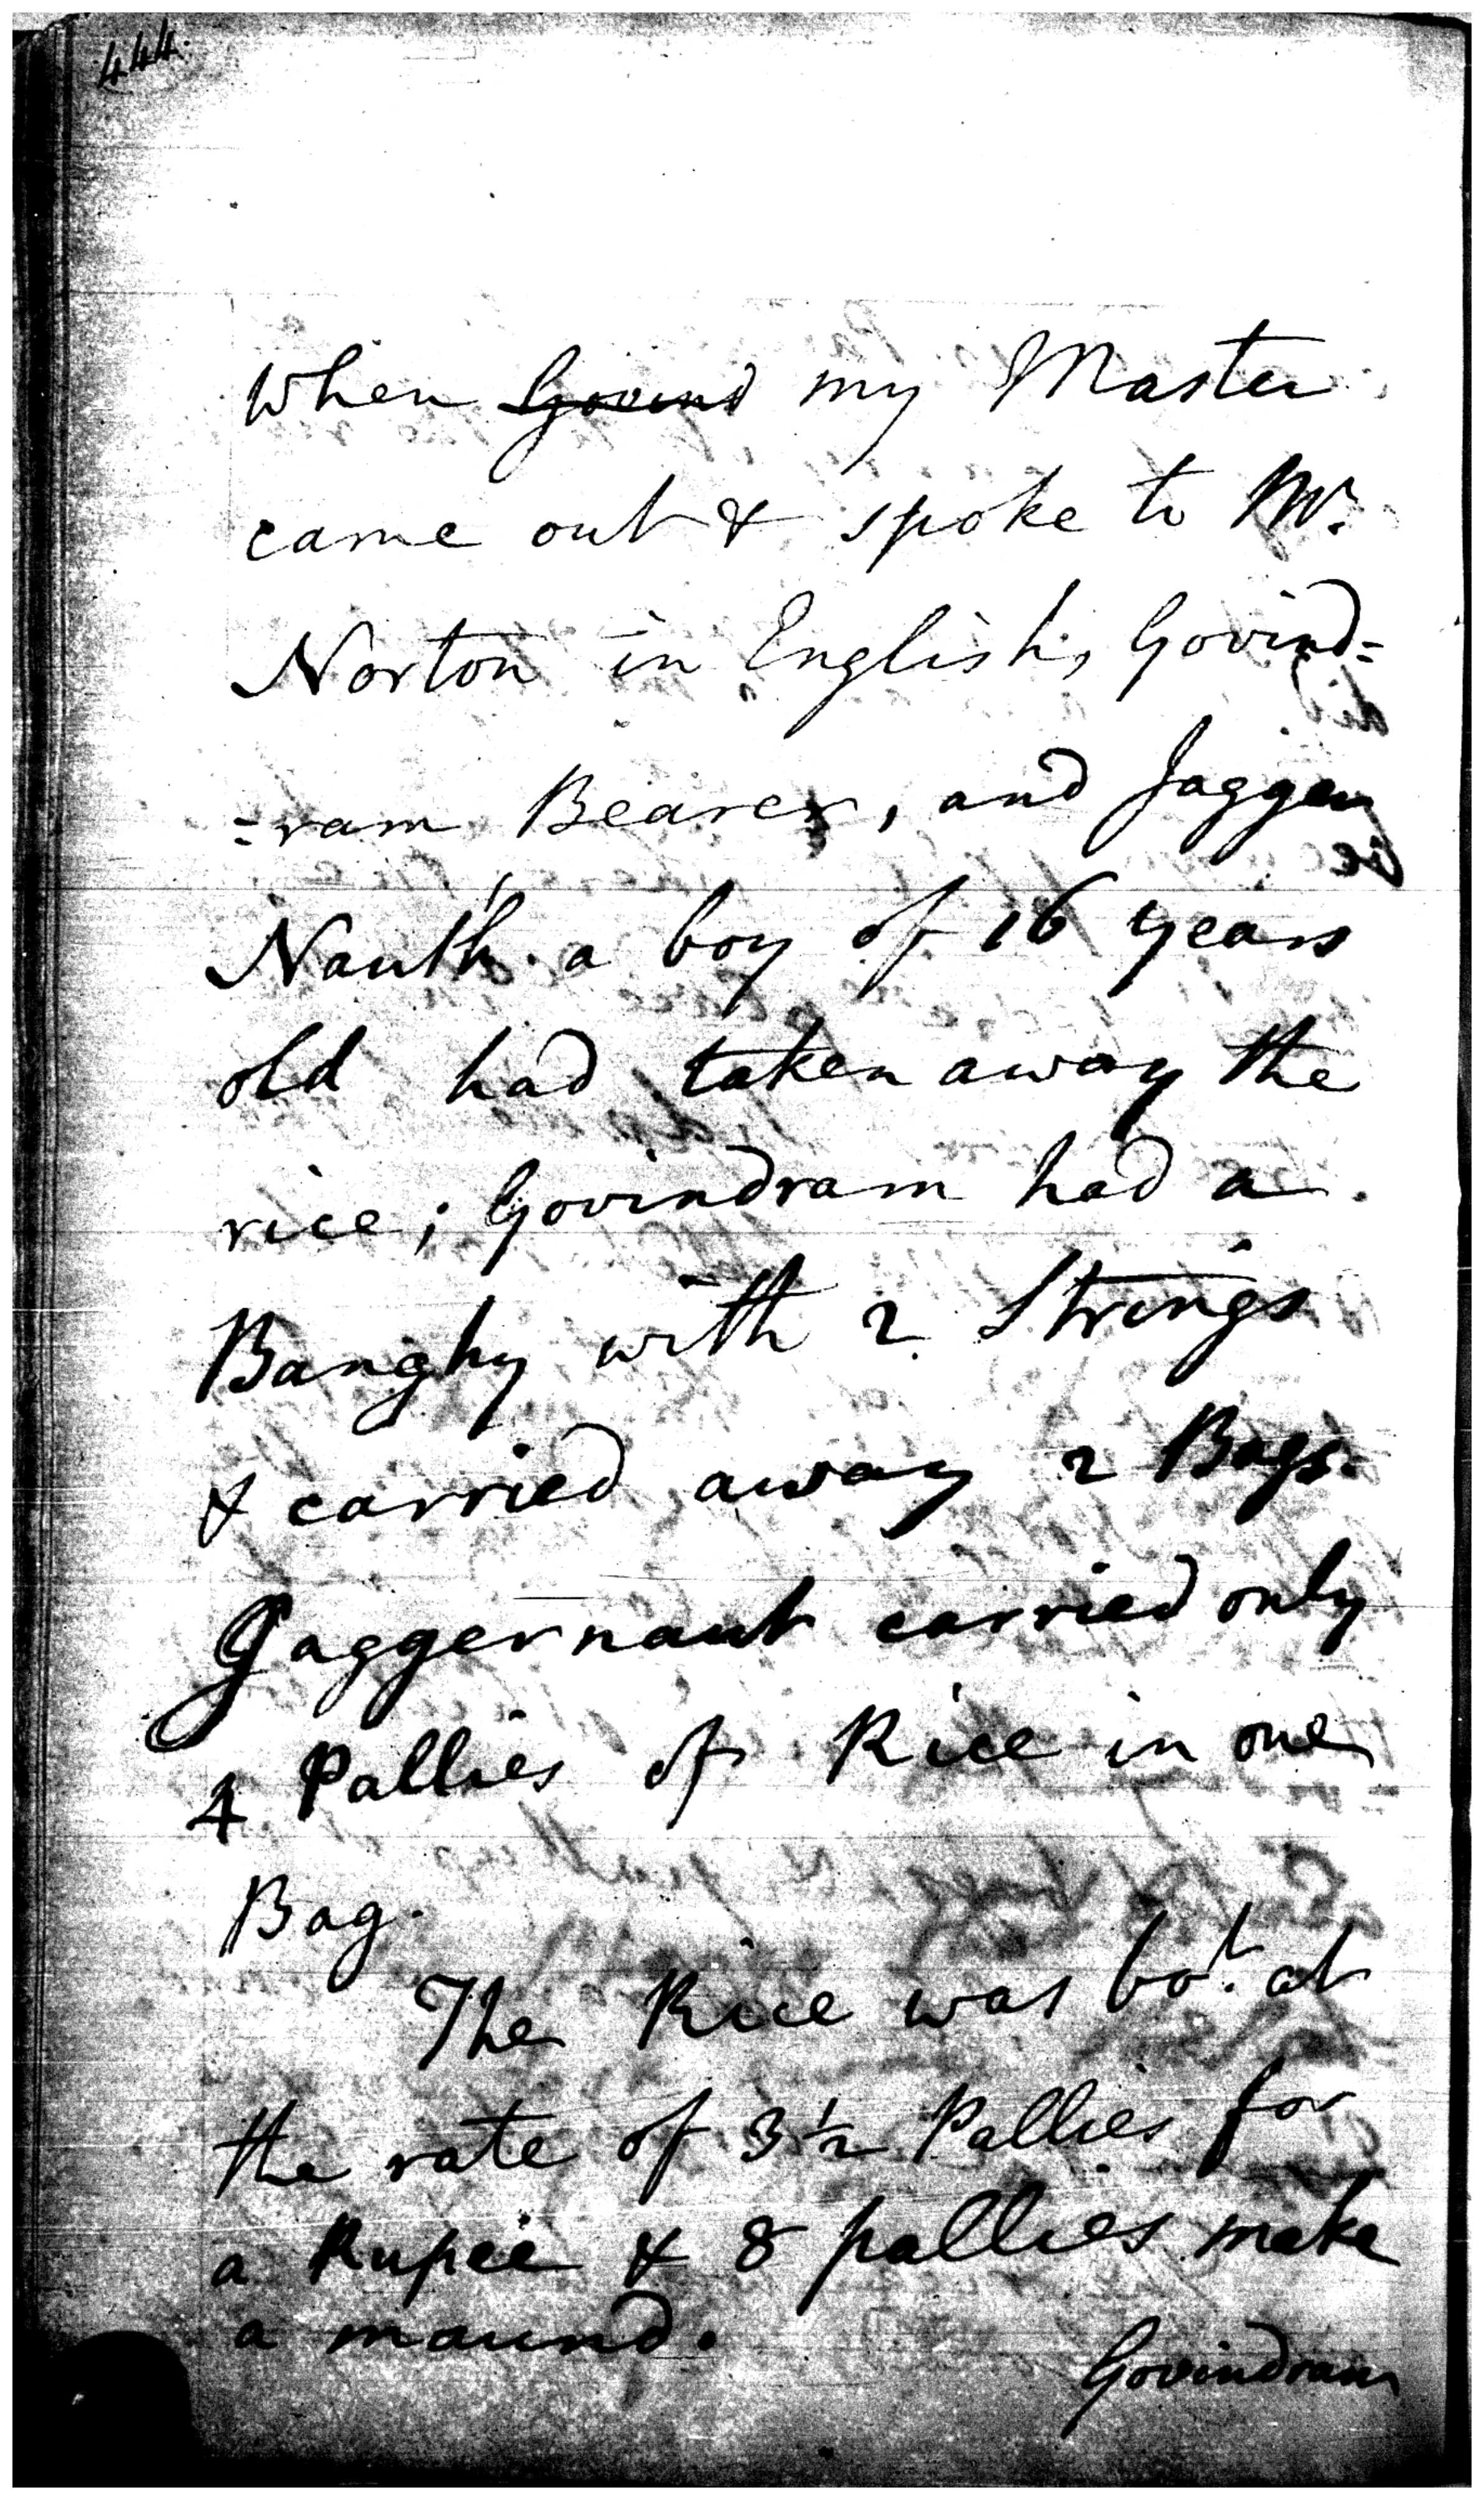 444.
When Govind my Master
came out & spoke to Mr.
Norton in English, Govind=
=ram Bearer, and Jagger
Nauth a boy of 16 years
old had taken away the
rice; Govindram had a
Banghy with 2 Strings
& carried away 2 Bags.
Jaggernaut carried only
4 Pallies of Rice in one
Bag.
The Rice was bot. at
the rate of 3 1/2 Pallies for
a Rupee & 8 pallies make
a maund.
Govindram